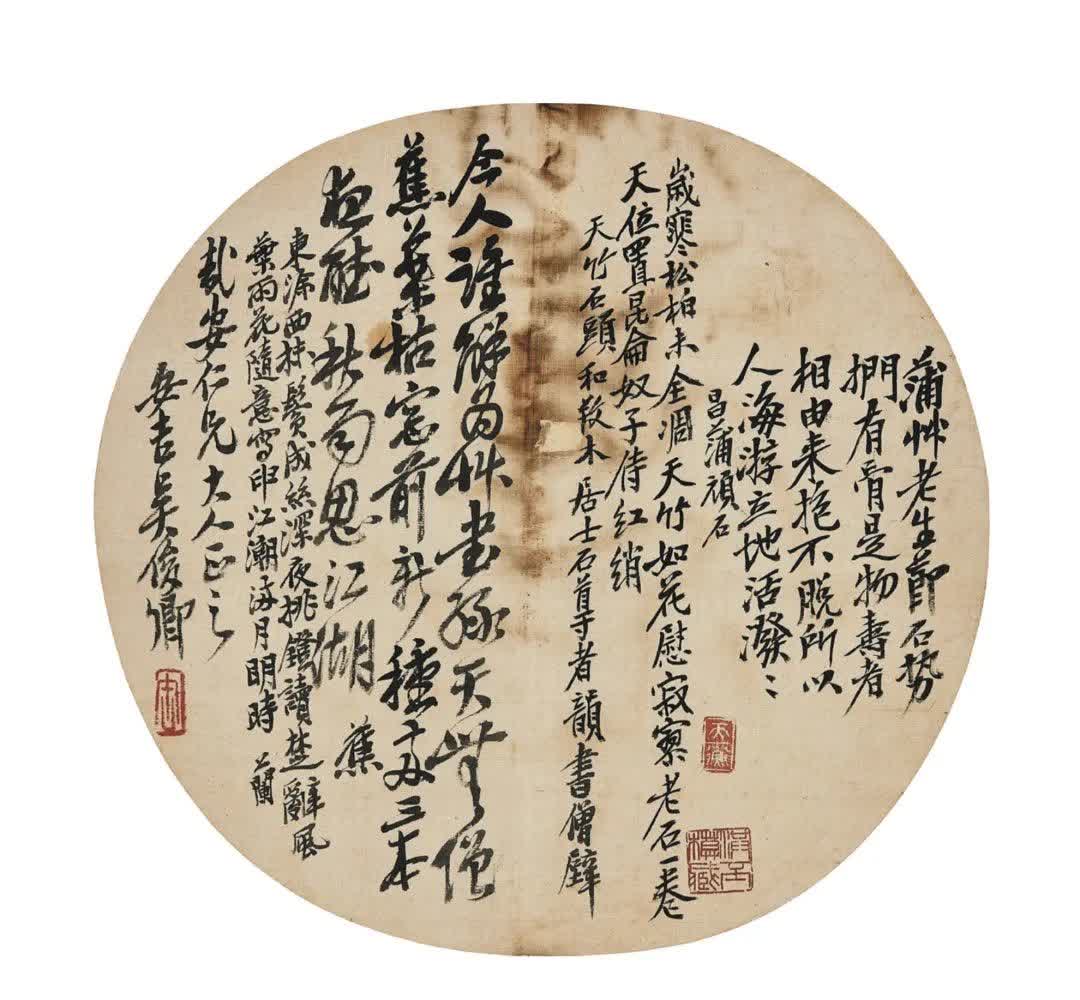 蒲艸老生節石勢
捫有骨是物壽者
相由来抱不脱所以
人海游立地活潑〻
昌蒲頑石
歲寒松柏未全凋天竹如花慰寂寥老石一卷
天位置昆侖奴子侍紅綃
天竹石頭和木居士石首于者韻書僧壁
今人誰解為艸書緑天無僧
蕉葉枯窓前新種十五三本
夜聽秋雨思江湖 蕉
東塗西抹鬢成絲深夜挑鐙讀楚辭風
葉雨花隨意寫申江潮滿月明時 蘭
安仁兄大人正之
安吉吳俊卿